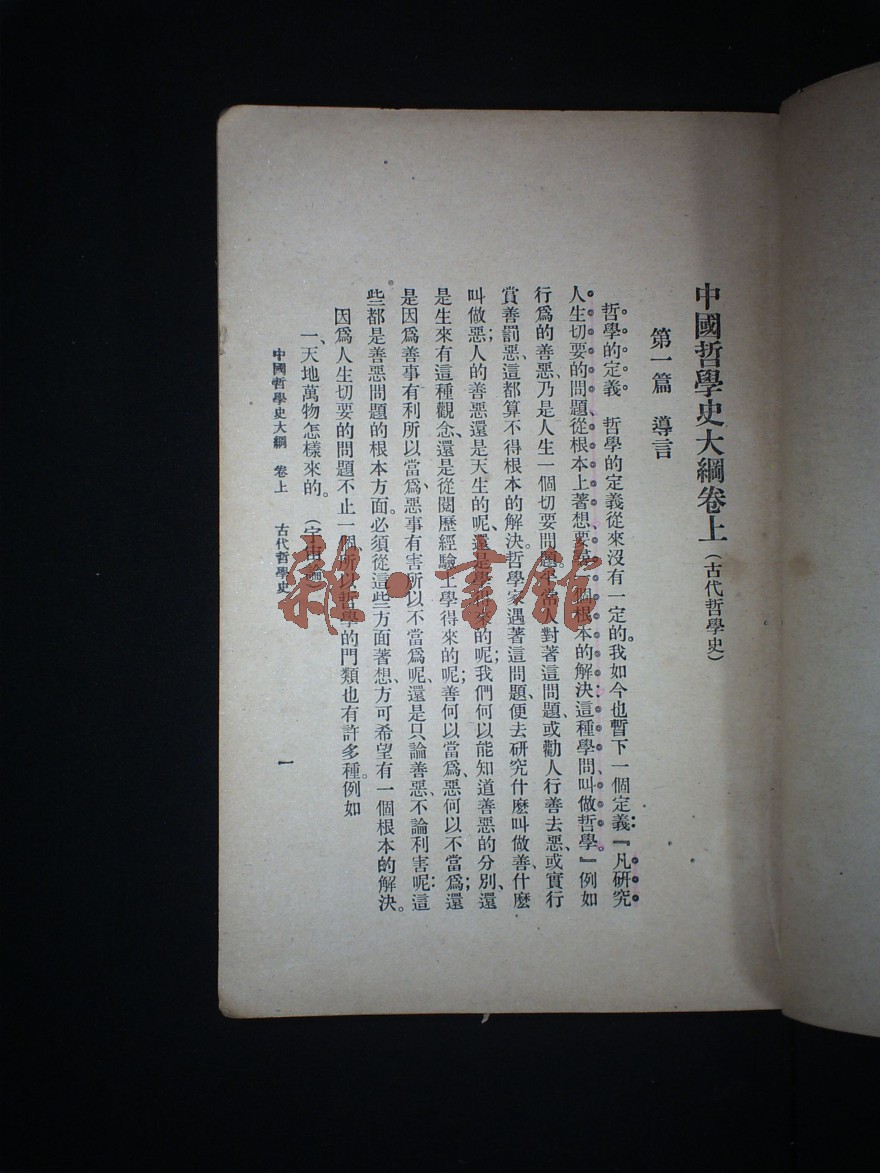 中國哲學史大綱卷上(古代哲學史)
第一篇 導言
哲學的定義 哲學的定義從來沒有一定的。我如今也暫下一個定義:『凡研究
人生切要的問題、從根本上著想、要尋一個根本的解決:這種學問、叫做哲學。』例如
行爲的善惡、乃是人生一個切要問題。平常人對著這問題、或勸人行善去惡、或實行
賞善罰惡、這都算不得根本的解決。哲學家遇著這問題、便去研究什麼叫做善、什麼
叫做惡;人的善惡還是天生的呢、還是學得來的呢;我們何以能知道善惡的分別、還
是生來有這種觀念、還是從閱歷經驗上學得來的呢;善何以當爲、惡何以不當爲;還
是因爲善事有利所以當爲、惡事有害所以不當爲呢、還是只論善惡、不論利害呢:這
些都是善惡問題的根本方面。必須從這些方面著想、方可希望有一個根本的解決。
因爲人生切要的問題不止一個、所以哲學的門類也有許多種。例如
一、天地萬物怎樣來的。(宇宙論)
中國哲學史大綱 卷上 古代哲學史 一
雜·書館